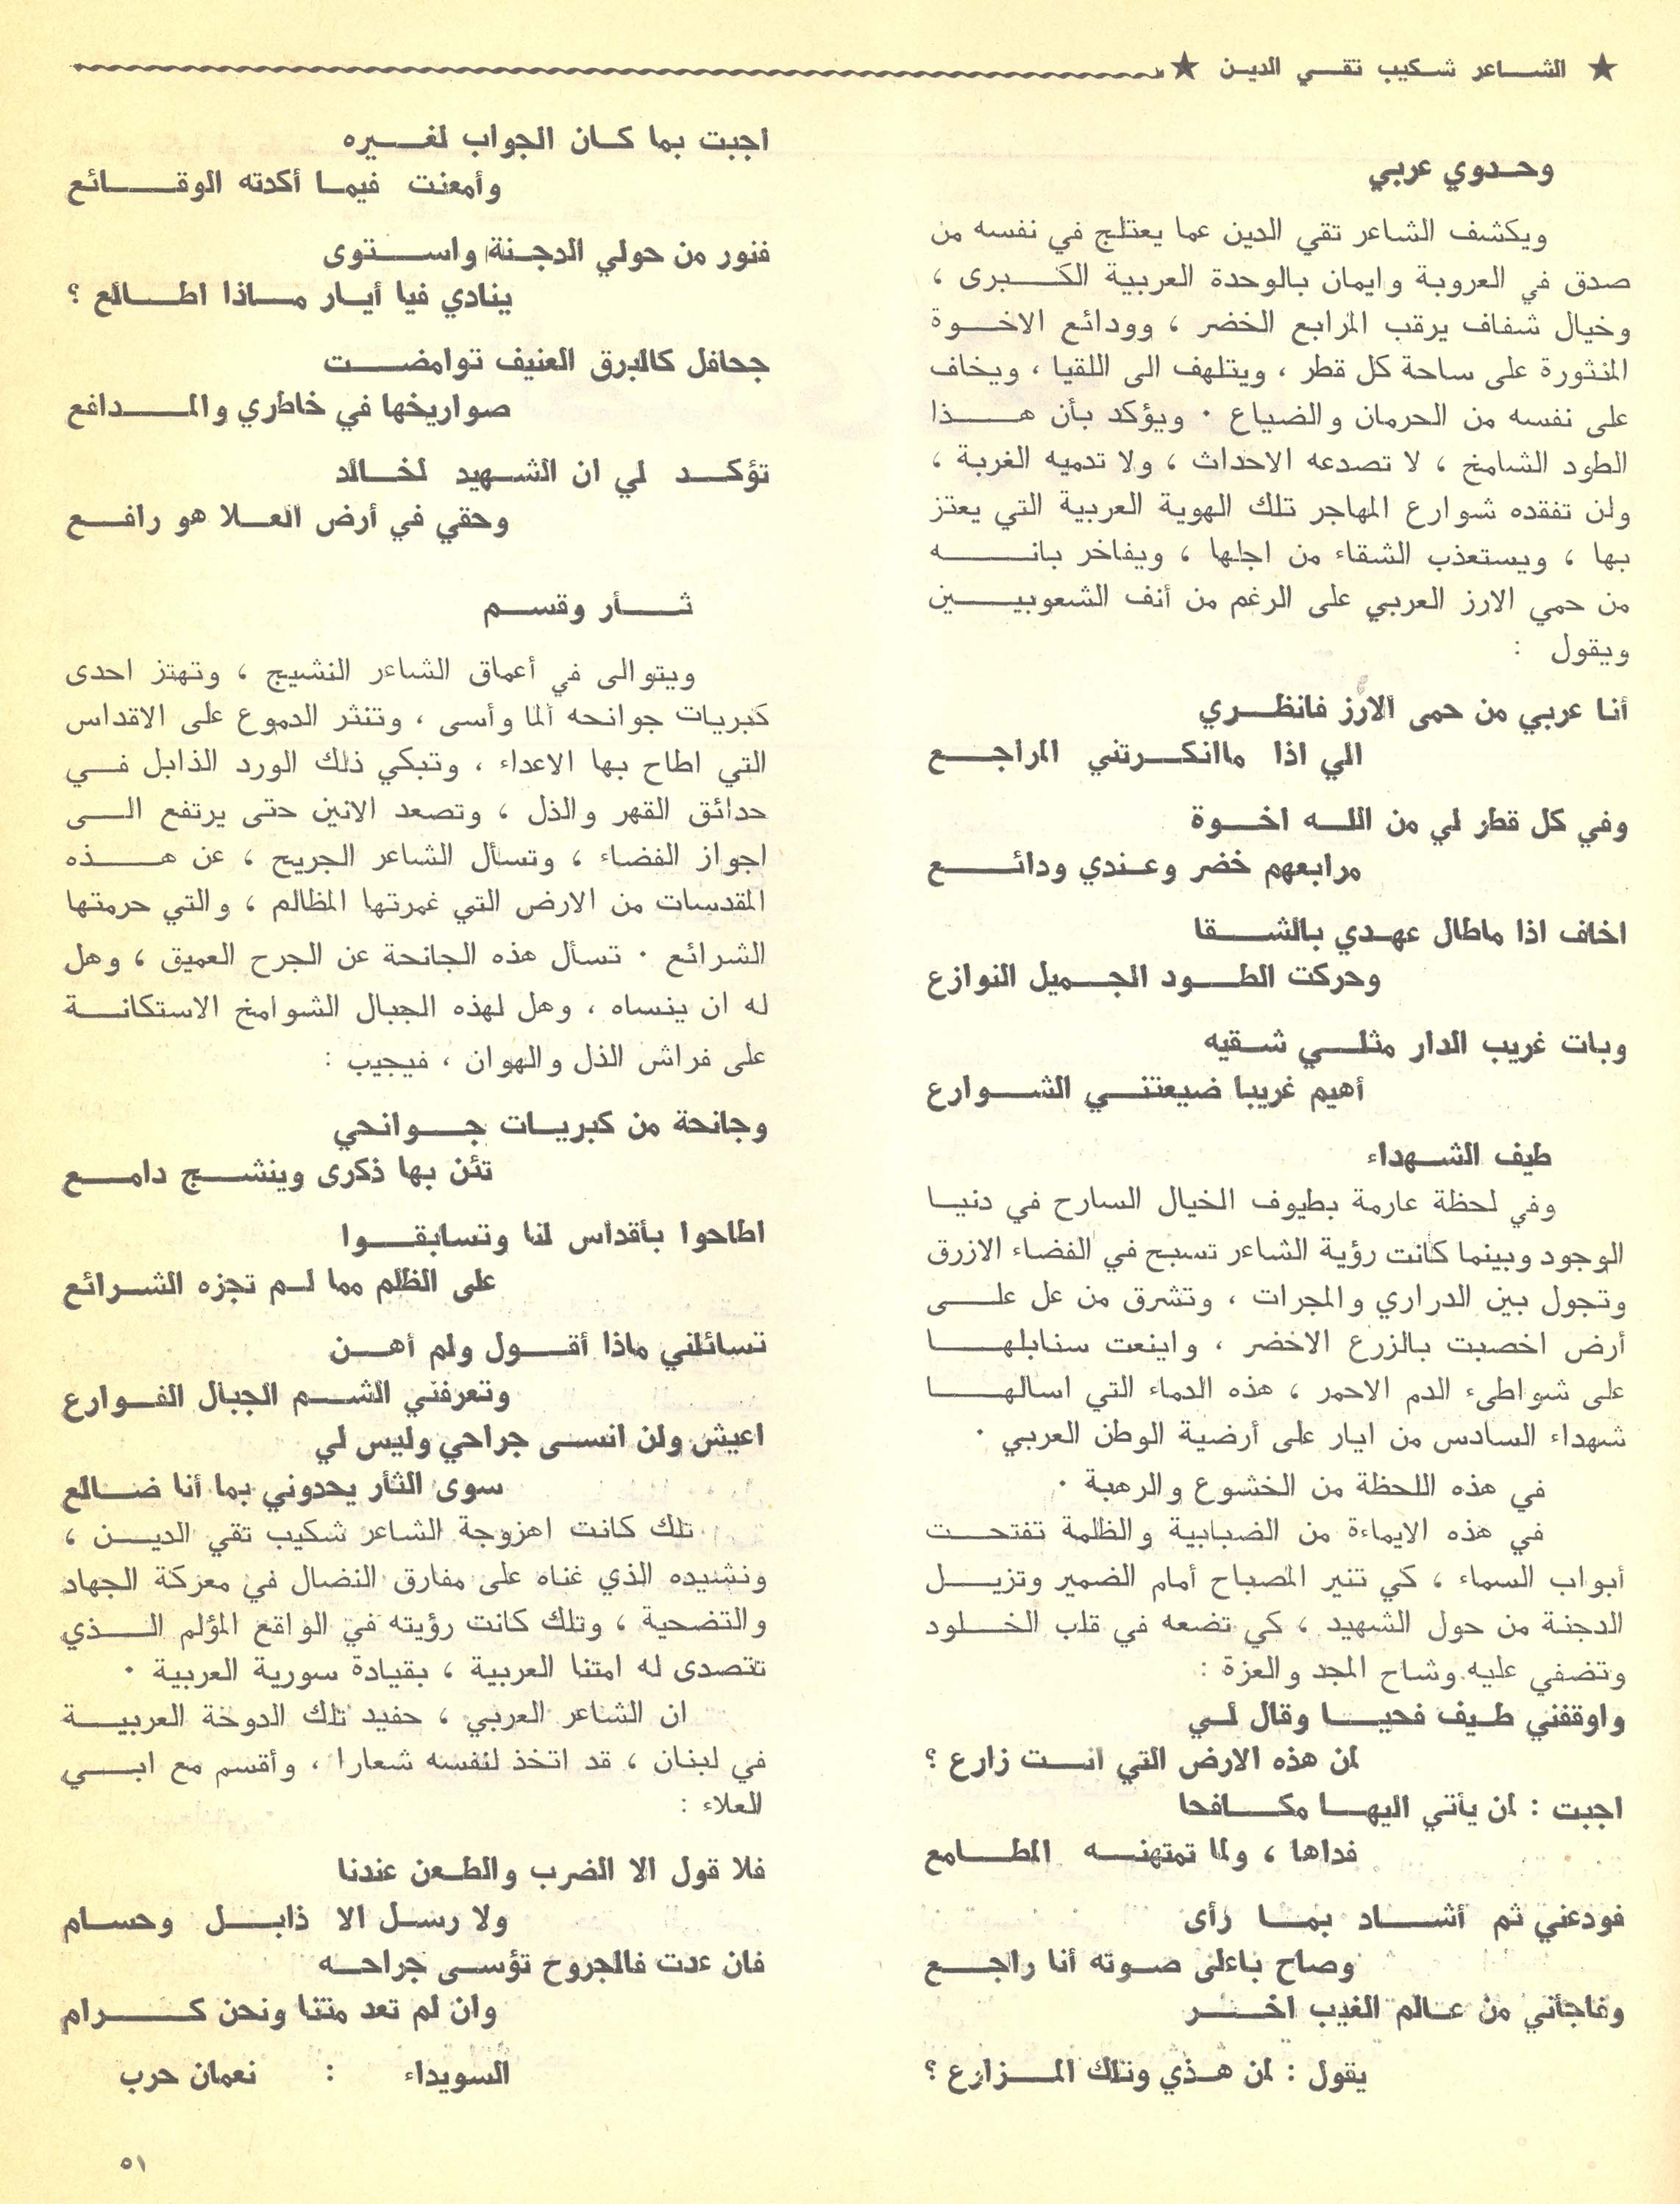 ★ الشاعر شكيب تقي الدين ★
وحدوي عربي
ويكشف الشاعر تقي الدين عما يعتلج في نفسه من
صدق في العروبة وايمان بالوحدة العربية الكبرى ،
وخيال شفاف يرقب المرابع الخضر ، وودائع الاخوة
المنثورة على ساحة كل قطر ، ويتلهف الى اللقيا ، ويخاف
على نفسه من الحرمان والضياع . ويؤكد بأن هذا
الطود الشامخ ، لا تصدعه الاحداث ، ولا تدميه الغربة ،
ولن تفقده شوارع المهاجر تلك الهوية العربية التي يعتز
بها ، ويستعذب الشقاء من اجلها ، ويفاخر بانه
من حمي الارز العربي على الرغم من أنف الشعوبيين
ويقول :
أنا عربي من حمى الارز فانظري
الي اذا ماانكرتني المراجع
وفي كل قطر لي من الله اخوة
مرابعهم خضر وعندي ودائع
اخاف اذا ماطال عهدي بالشقا
وحركت الطود الجميل النوازع
وبات غريب الدار مثلي شقيه
أهيم غريبا ضيعتني الشوارع
طيف الشهداء
وفي لحظة عارمة بطيوف الخيال السارح في دنيا
الوجود وبينما كانت رؤية الشاعر تسبح في الفضاء الازرق
وتجول بين الدراري والمجرات ، وتشرق من عل على
أرض اخصبت بالزرع الاخضر ، واينعت سنابلها
على شواطىء الدم الاحمر ، هذه الدماء التي اسالها
شهداء السادس من ايار على أرضية الوطن العربي .
في هذه اللحظة من الخشوع والرهبة .
في هذه الايماءة من الضبابية والظلمة تفتحت
أبواب السماء ، كي تنير المصباح أمام الضمير وتزيل
الدجنة من حول الشهيد ، كي تضعه في قلب الخلود
وتضفي عليه وشاح المجد والعزة :
واوقفني طيف فحيا وقال لي
لمن هذه الارض التي انت زارع ؟
اجبت : لمن يأتي اليها مكافحا
فداها ، ولما تمتهنه المطامع
فودعني ثم أشاد بما رأى
وصاح باعلى صوته أنا راجع
وفاجأني من عالم الغيب اخر
يقول : لمن هذي وتلك المزارع ؟
اجبت بما كان الجواب لغيره
وأمعنت فيما أكدته الوقائع
فنور من حولي الدجنة واستوى
ينادي فيا أيار ماذا اطالع ؟
جحافل كالبرق العنيف توامضت
صواريخها في خاطري والمدافع
تؤكد لي ان الشهيد لخالد
وحقي في أرض العلا هو رافع
ثأر وقسم
ويتوالى في أعماق الشاعر النشيج ، وتهتز احدى
كبريات جوانحه ألما وأسى ، وتنثر الدموع على الاقداس
التي اطاح بها الاعداء ، وتبكي ذلك الورد الذابل في
حدائق القهر والذل ، وتصعد الانين حتى يرتفع الى
اجواز الفضاء ، وتسأل الشاعر الجريح ، عن هذه
المقدسات من الارض التي غمرتها المظالم ، والتي حرمتها
الشرائع . تسأل هذه الجانحة عن الجرح العميق ، وهل
له ان ينساه ، وهل لهذه الجبال الشوامخ الاستكانة
على فراش الذل والهوان ، فيجيب :
وجانحة من كبريات جوانحي
تئن بها ذكرى وينشج دامع
اطاحوا بأقداس لنا وتسابقوا
على الظلم مما لم تجزه الشرائع
تسائلني ماذا أقول ولم أهن
وتعرفني الشم الجبال الفوارع
اعيش ولن انسى جراحي وليس لي
سوى الثأر يحدوني بما أنا ضالع
تلك كانت اهزوجة الشاعر شكيب تقي الدين ،
ونشيده الذي غناه على مفارق النضال في معركة الجهاد
والتضحية ، وتلك كانت رؤيته في الواقع المؤلم الذي
تتصدى له امتنا العربية ، بقيادة سورية العربية .
ان الشاعر العربي ، حفيد تلك الدوحة العربية
في لبنان ، قد اتخذ لنفسه شعارا ، وأقسم مع ابي
العلاء :
فلا قول الا الضرب والطعن عندنا
ولا رسل الا ذابل وحسام
فان عدت فالجروح تؤسى جراحه
وان لم تعد متنا ونحن كرام
السويداء : نعمان حرب
٥١